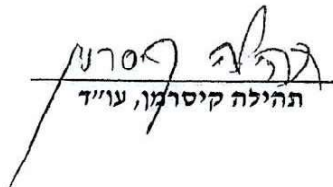 תהילה קיסרמן
תהילה קיסרמן, עו"ד